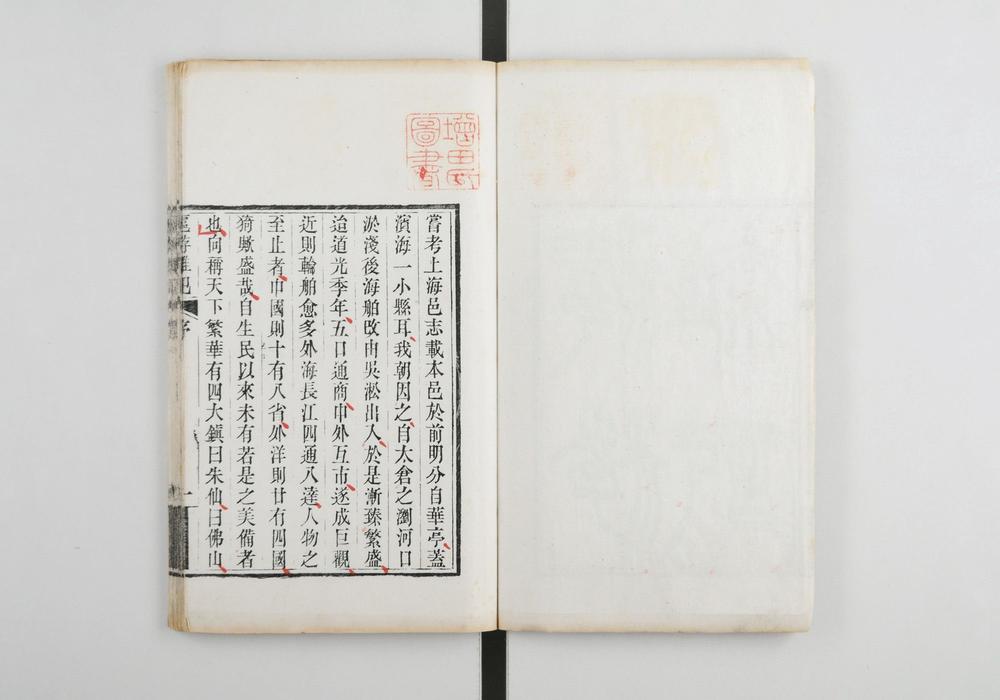 增田氏
圖書
嘗考上海邑志載本邑於前明分自華亭蓋
濱海一小縣耳我朝因之自太倉之瀏河口
淤淺後海舶改由吳淞出入於是漸臻繁盛
迨道光季年五口通商中外互市遂成巨觀
近則輪舶愈多外海長江四通八達人物之
至止者中國則十有八省外洋則廿有四國
猗歟盛哉自生民以來未有若是之美備者
也向稱天下繁華有四大鎮曰朱仙曰佛山
滬游雜記 序 一